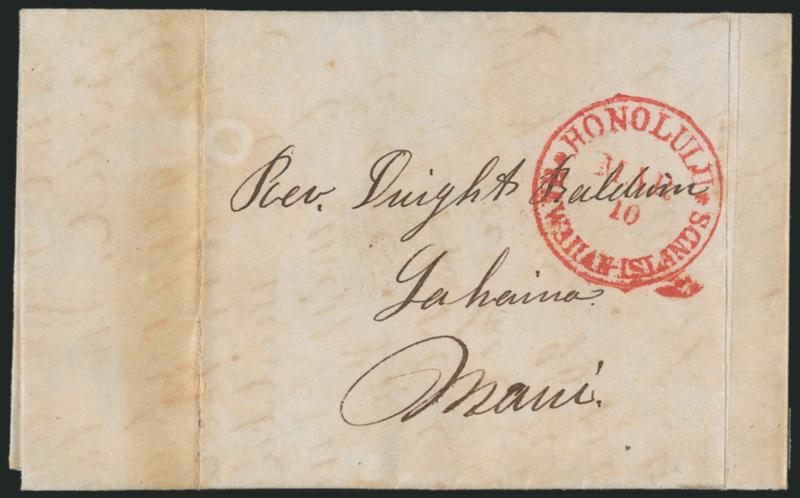 HONOLULU
MAR
10
HAWAIIAN-ISLANDS
Rev. Dwight Baldwin
Lahaina.
Maui.